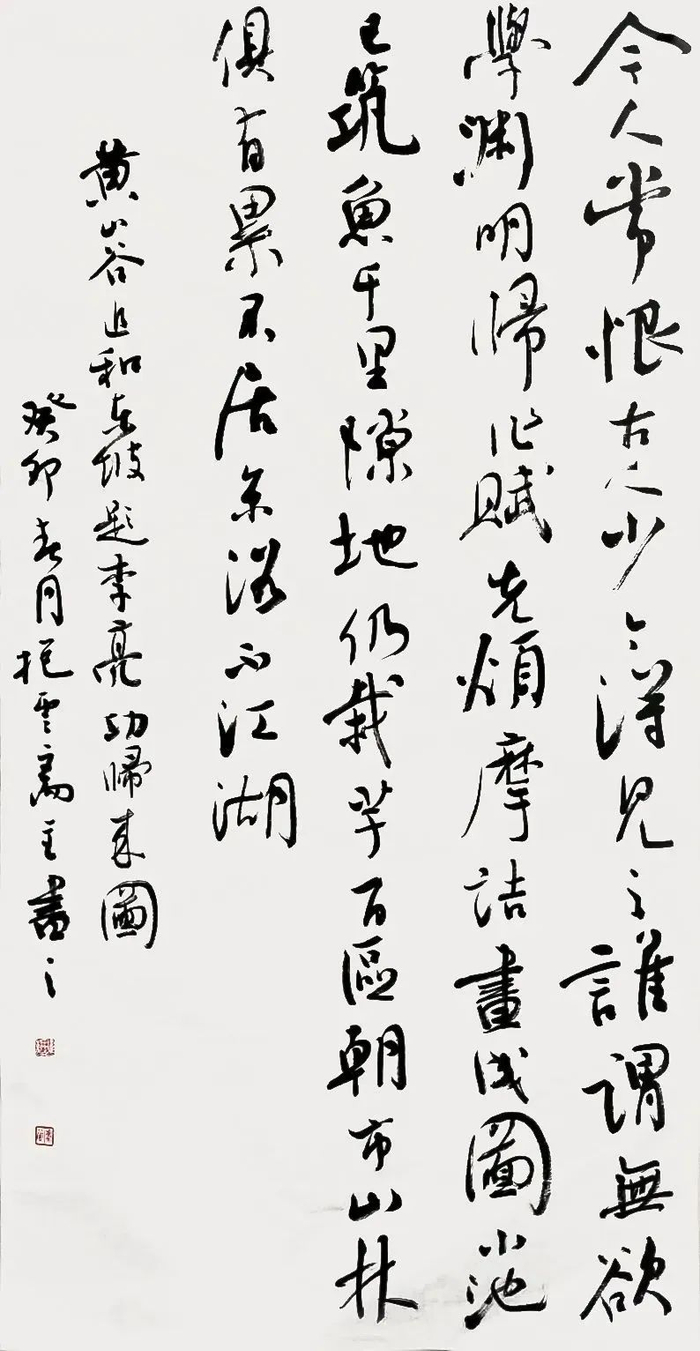 今人常恨古人少今得見之誰謂無欲
學淵明歸作賦先煩摩詰畫成圖小池
已筑魚千里隙地仍栽芋百區朝市山林
俱有累不居京洛不江湖
黄山谷追和東坡題李亮功歸來圖
癸卯春月抱雲齋主書之